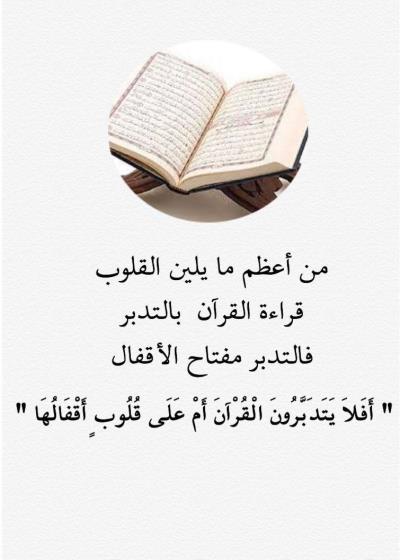 من أعظم ما يلين القلوب
قراءة القرآن بالتدبر
فالتدبر مفتاح الأقفال
" أَفَلاَ يَتَدَبَّرُونَ الْقُرْآنَ أَمْ عَلَى قُلُوبٍ أَقْفَالُهَا "